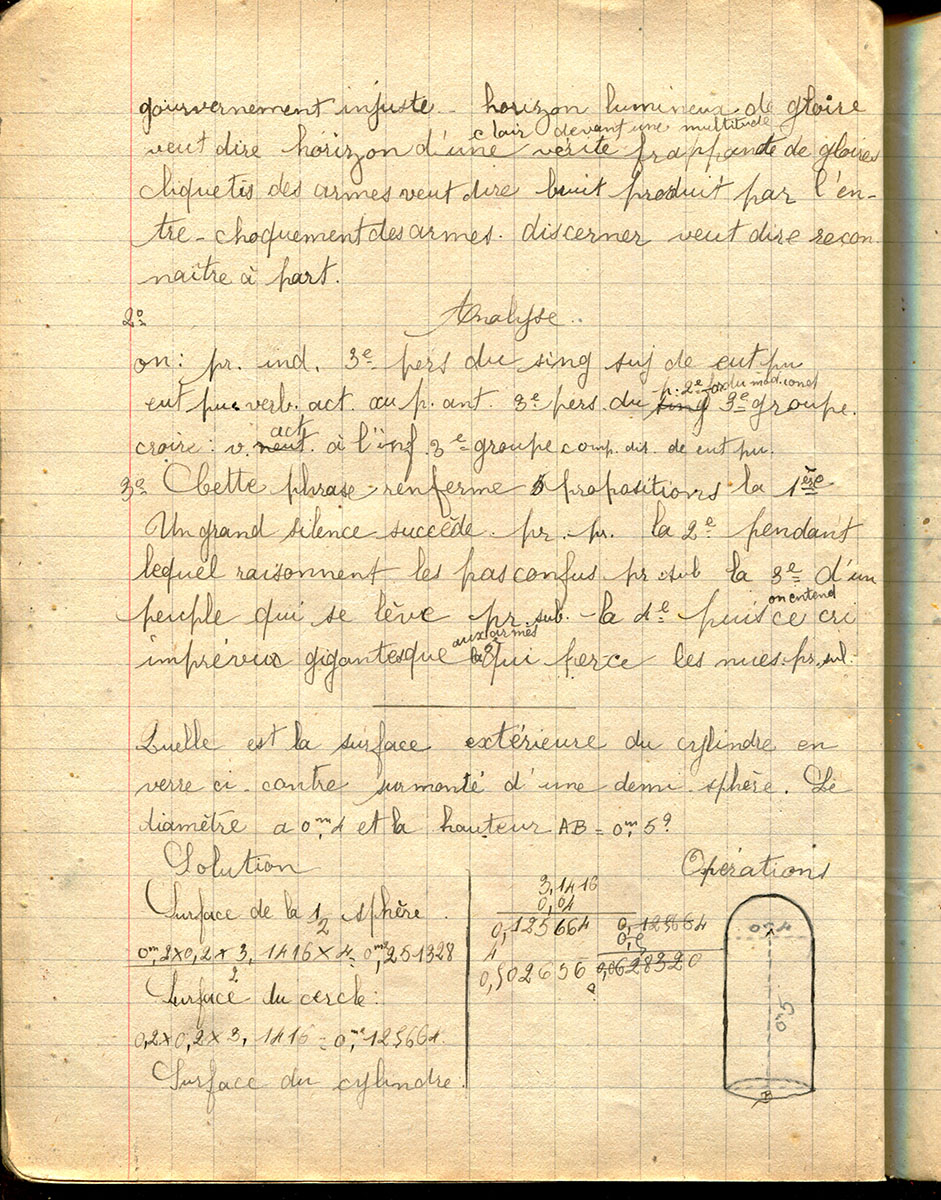 gourvernement injuste - horizon lumineux de gloire
clair devant une multitude
veut dire horizon d'une vérité frappante de gloires
cliquetis des armes veut dire buit produit par l'en-
tre-choquement des armes. discerner veut dire recon
naître à part.
2º Analyse..
on: pr. ind. 3e pers du sing suj de eut pu
p. 2e du mod. cond
eut pu verb. act. au p. ant. 3e pers. du sing 3e groupe.
act
croire: v. neut. à l'inf. 3e groupe comp. dir. de eut pu.
3º Cette phrase renferme 5 propositions la 1ère
Un grand silence succède. pr. pr. la 2e pendant
lequel raisonnent les pas confus pr. sub la 3e d'un
on entend
peuple qui se lève pr. sub. - la 4e puis ce cri
aux armes
imprévu gigantesque qui perce les nues. pr. sub.
Quelle est la surface extérieure du cylindre en
verre ci-contre surmonté d'une demi sphère. Le
diamètre a 0m,4 et la hauteur AB = 0m,5?
Solution
Opérations
Surface de la 1/2 sphère.
0m,2×0,2×3,1416×4 = 0m2,251328
2
Surface du cercle:
0,2×0,2×3,1416 = 0,m2125664.
Surface du cylindre.
3,1416
0,04
0,125664
4
0,502656
0,125664
0,0628320
0m4
0m5
A
B